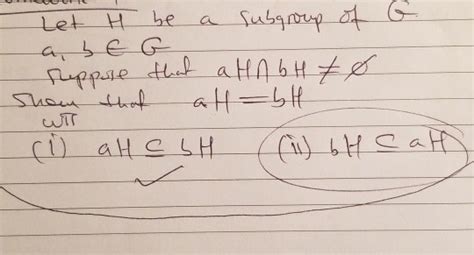 Let H be a subgroup of G
a, b ∈ G
Suppose that aH∩bH ≠ ∅
Show that aH=bH
WTT
(i) aH ⊆ bH (ii) bH ⊆ aH
✓